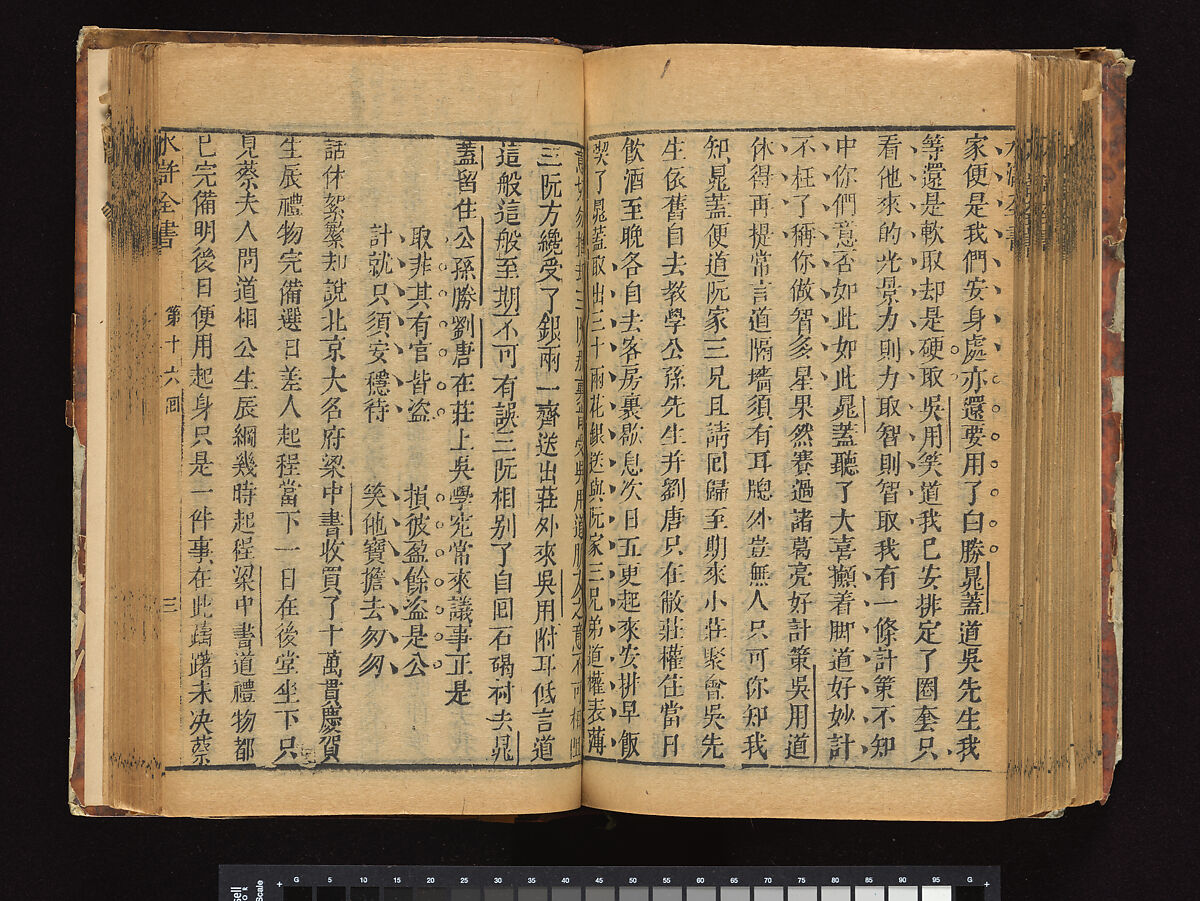 家便是我們安身處亦還要用了白勝晁蓋道吳先生我
等還是軟取却是硬取吳用笑道我已安排定了圈套只
看他來的光景力則力取智則智取我有一條計策不知
中你們意否如此如此晁蓋聽了大喜攧着脚道好妙計
不枉了稱你做智多星果然賽過諸葛亮好計策吳用道
休得再提常言道隔墻須有耳牕外豈無人只可你知我
知晁蓋便道阮家三兄且請回歸至期來小莊聚會吳先
生依舊自去教學公孫先生并劉唐只在敝莊權住當日
飲酒至晚各自去客房裏歇息次日五更起來安排早飯
喫了晁蓋取出三十兩花銀送與阮家三兄弟道權表薄
意切勿推却三阮那裏肯受吳用道朋友之意不可相阻
三阮方纔受了銀兩一齊送出莊外來吳用附耳低言道
這般這般至期不可有誤三阮相别了自回石碣村去晁
蓋留住公孫勝劉唐在莊上吳學究常來議事正是
取非其有官皆盜 損彼盈餘盜是公
計就只須安穩待 笑他寶擔去匆匆
話休絮繁却說北京大名府梁中書收買了十萬貫慶賀
生辰禮物完備選日差人起程當下一日在後堂坐下只
見蔡夫人問道相公生辰綱幾時起程梁中書道禮物都
已完備明後日便用起身只是一件事在此躊躇未决蔡
水滸全書 第十六回 三